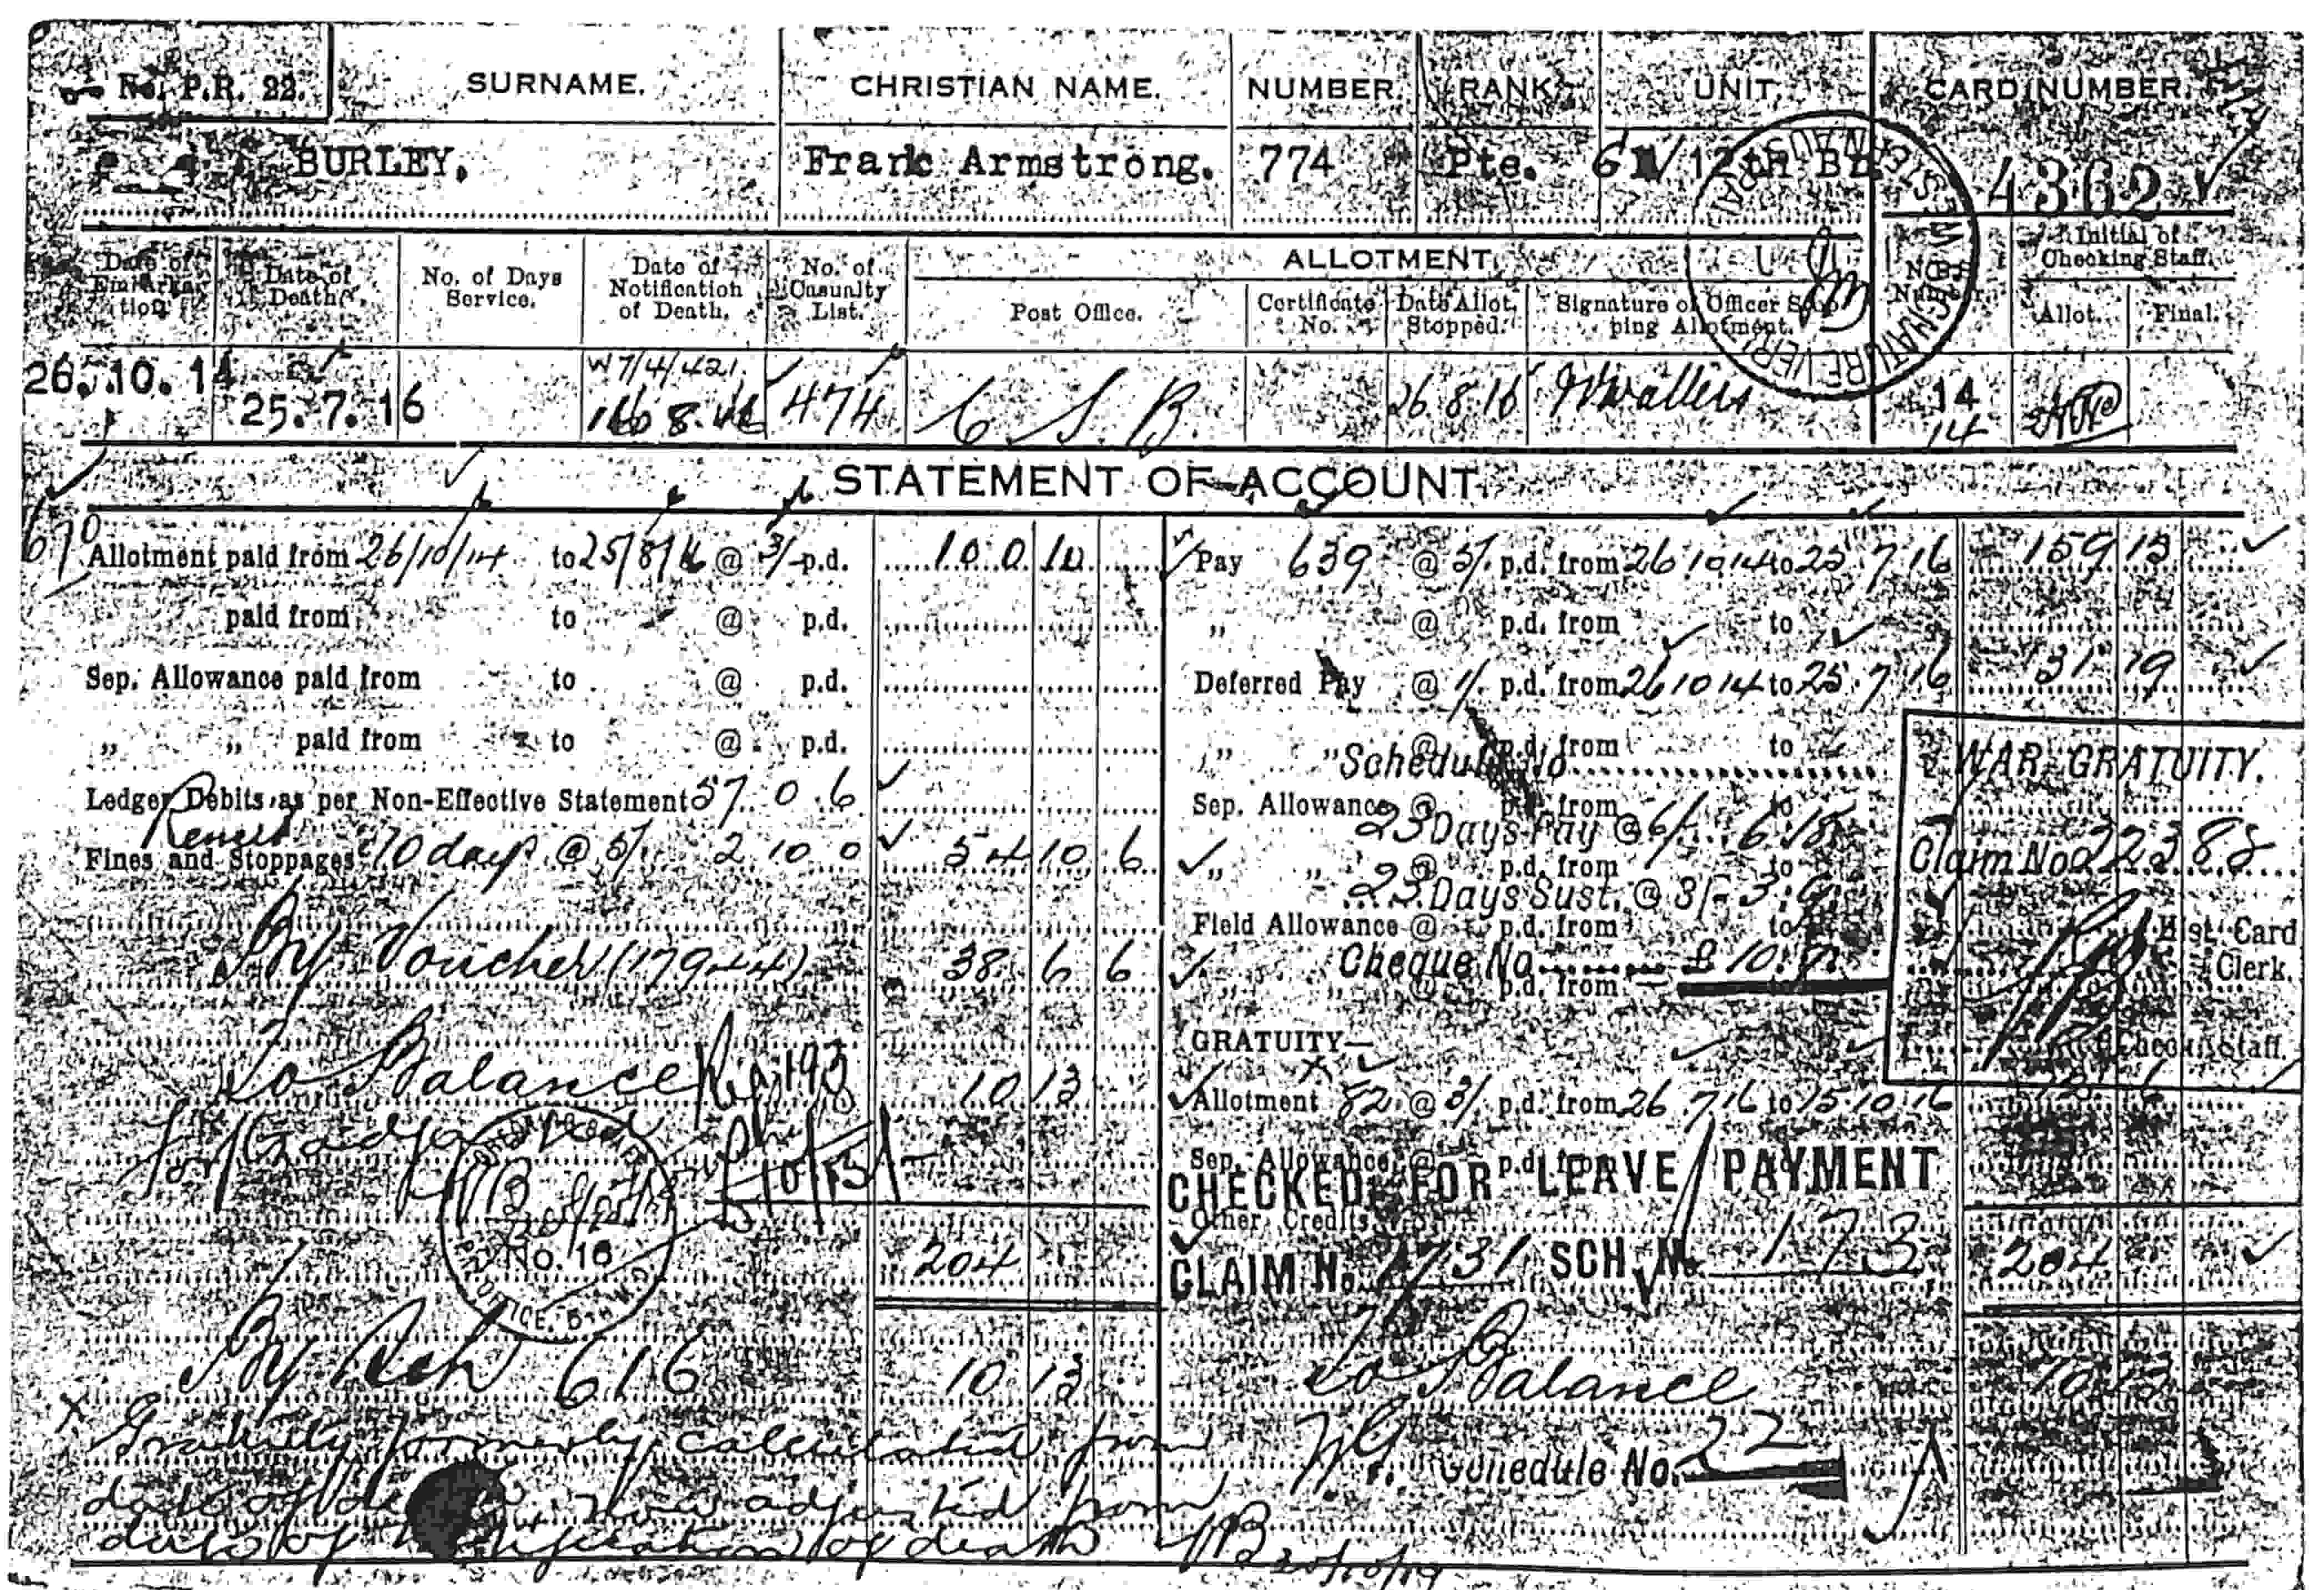 No. P.R. 22. SURNAME. CHRISTIAN NAME. NUMBER. RANK. UNIT. CARD NUMBER.
BURLEY. Frank Armstrong. 774 Pte. 12th Bn. 4362
Date of Embarkation Date of Death. No. of Days Service. Date of Notification of Death. No. of Casualty List. ALLOTMENT. Initial of Checking Staff.
Post Office. Certificate No. Date Allot. Stopped. Signature of Officer Stopping Allotment. Allot. Final.
SIGNATURE VERIFIED
W7/4/421
26.10.14 25.7.16 8.16 474 C S. B. 26.8.16 14
14
STATEMENT OF ACCOUNT.
670
Allotment paid from 26/10/14 to 25/8/16 @ 3/- p.d. 100 10
paid from to @ p.d.
Sep. Allowance paid from to @ p.d.
„ „ paid from to @ p.d.
Ledger Debits as per Non-Effective Statement 57 0 6
Fines and Stoppages 10 days @ 5/. 2 10 0 54 10 6
By Voucher (17944) 38 6 6
To Balance 10 13
£10/13/-
PAY OFFICE, 6TH M.D.
No. 16
204
By Sch 616 10 13
x Gratuity formerly calculated from
date of death now adjusted from
date of notification of death 20/10/19
Pay 639 @ 5/. p.d. from 26.10.14 to 25.7.16 159 15
„ @ p.d. from to
Deferred Pay @ 1/. p.d. from 26 10 14 to 25.7.16 31 19
„ „ @ p.d. from to
Schedule No.
WAR GRATUITY.
Sep. Allowance @ p.d. from to
23 Days Pay @ 6/- 6.18.
Claim No. 22388
„ „ @ p.d. from to
23 Days Sust. @ 3/- 3.9.
Field Allowance @ p.d. from to
Hist. Card Clerk.
Cheque No. £10.7.
„ @ p.d. from
GRATUITY—
Check Staff.
Allotment 82 @ 3/ p.d. from 26.7.16 to 15.10.16 12 6
Sep. Allowance @ p.d.
CHECKED FOR LEAVE PAYMENT
Other Credits
CLAIM No. 1731 SCH. No. 173 204
To Balance 10 13
WG. Schedule No. 22